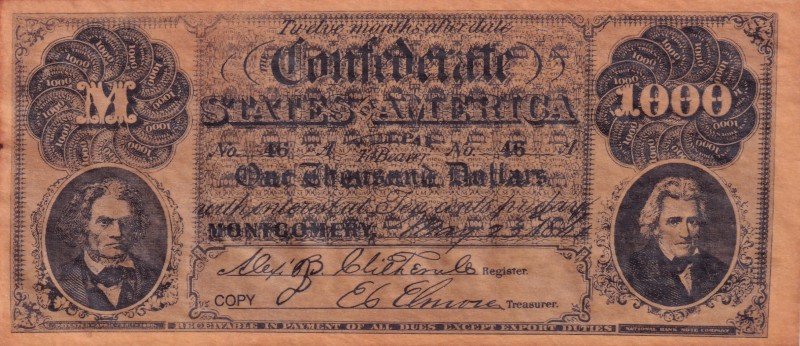 Twelve months after date
THE
Confederate
STATES OF AMERICA
M
1000
No. 46 A No. 46 A
to Bearer
One Thousand Dollars
with interest at Ten cents per day
MONTGOMERY, May 23 18
Alex B. Clitherall Register.
COPY E C Elmore Treasurer.
RECEIVABLE IN PAYMENT OF ALL DUES EXCEPT EXPORT DUTIES
NATIONAL BANK NOTE COMPANY